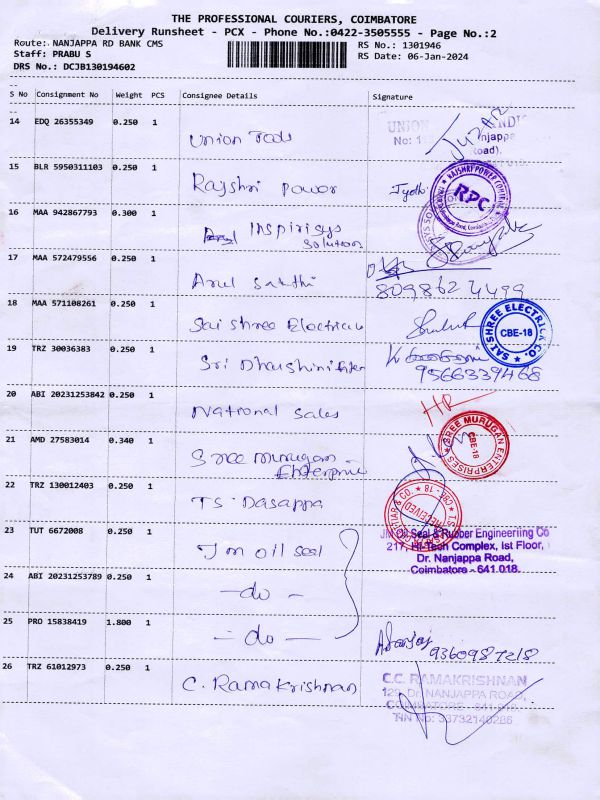 THE PROFESSIONAL COURIERS, COIMBATORE
Delivery Runsheet - PCX - Phone No.:0422-3505555 - Page No.:2
Route: NANJAPPA RD BANK CMS
RS No.: 1301946
Staff: PRABU S
RS Date: 06-Jan-2024
DRS No.: DCJB130194602
S No Consignment No Weight PCS Consignee Details Signature
14 EDQ 26355349 0.250 1
Union Tools
UNION
No: 1
Road).
15 BLR 5950311103 0.250 1
Rajshri Power Jyothi
RAJSHRI POWER CONTROL
RPC
16 MAA 942867793 0.300 1
INSpirisys
Solution
17 MAA 572479556 0.250 1
Arul Sakthi
8098627499
18 MAA 571108261 0.250 1
Sai shree Electrical
SAI SHREE ELECTRIC CO.
CBE-18
19 TRZ 30036383 0.250 1
Sri Dharshini
9566339468
20 ABI 20231253842 0.250 1
National Sales
21 AMD 27583014 0.340 1
Sree murugan
Enterprise
SREE MURUGAN ENTERPRISES
CBE-18
22 TRZ 130012403 0.250 1
T.S. Dasappa
RECEIVED
23 TUT 6672008 0.250 1
Jm oil seal
JM Oil Seal & Rubber Engineering Co
217, Hi-Tech Complex, Ist Floor,
Dr. Nanjappa Road,
Coimbatore - 641.018.
24 ABI 20231253789 0.250 1
- do -
25 PRO 15838419 1.800 1
- do -
9360987218
26 TRZ 61012973 0.250 1
C. Ramakrishnan
C.C. RAMAKRISHNAN
129, Dr. NANJAPPA ROAD,
COIMBATORE - 641 018
TIN No: 33732140286